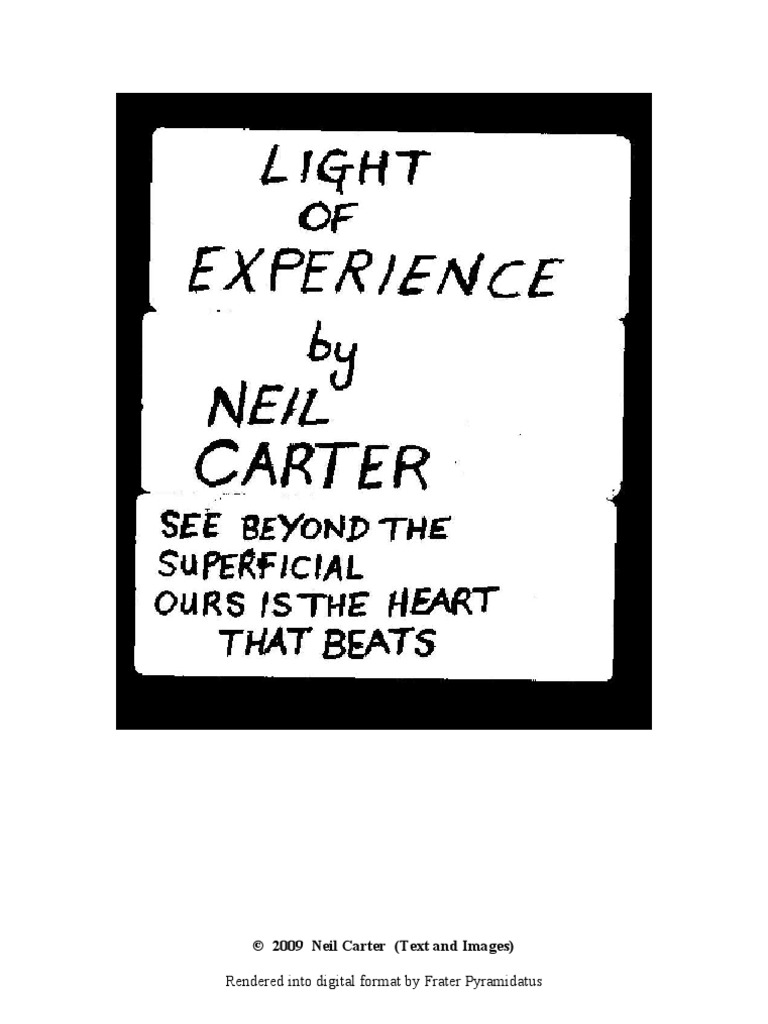 LIGHT
OF
EXPERIENCE
by
NEIL
CARTER
SEE BEYOND THE
SUPERFICIAL
OURS IS THE HEART
THAT BEATS
© 2009 Neil Carter (Text and Images)
Rendered into digital format by Frater Pyramidatus